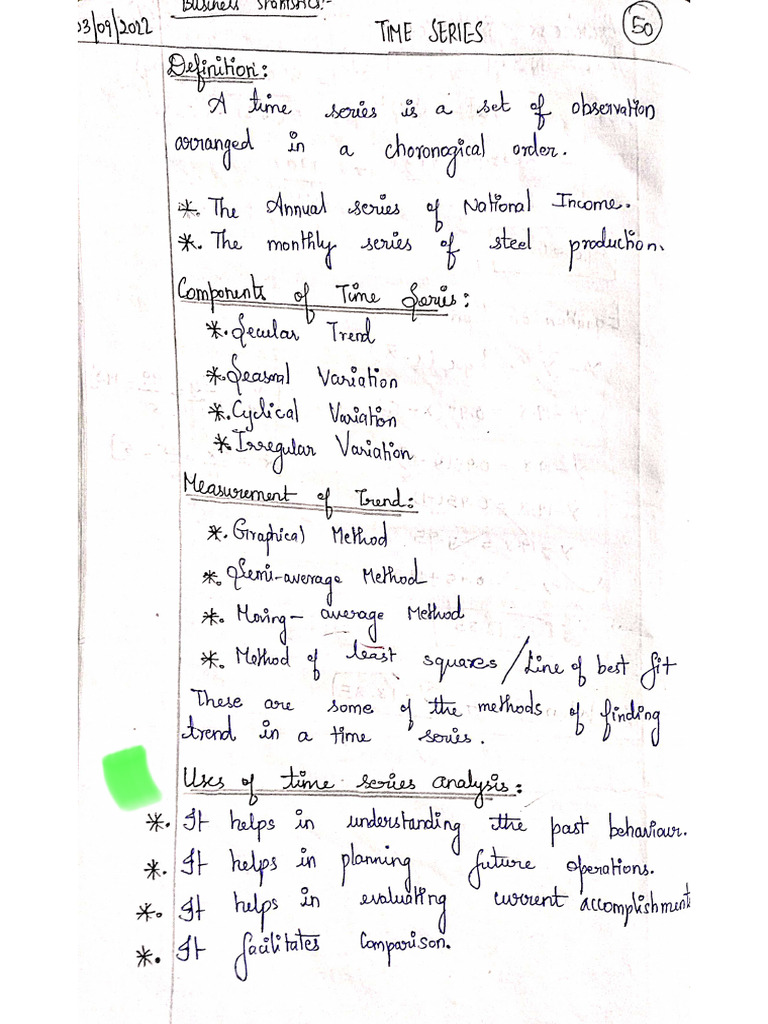 Business Statistics:-
03/09/2022
TIME SERIES
50
Definition:
A time series is a set of observation
arranged in a choronogical order.
*. The Annual series of National Income.
*. The monthly series of steel production.
Components of Time Series:
*. Secular Trend
*. Seasonal Variation
*. Cyclical Variation
*. Irregular Variation
Measurement of Trend:
*. Graphical Method
*. Semi-average Method
*. Moving- average Method
*. Method of least squares / Line of best fit
These are some of the methods of finding
trend in a time series.
Uses of time series analysis:
*. It helps in understanding the past behaviour.
*. It helps in planning future operations.
*. It helps in evaluating current accomplishment
*. It facilitates comparison.